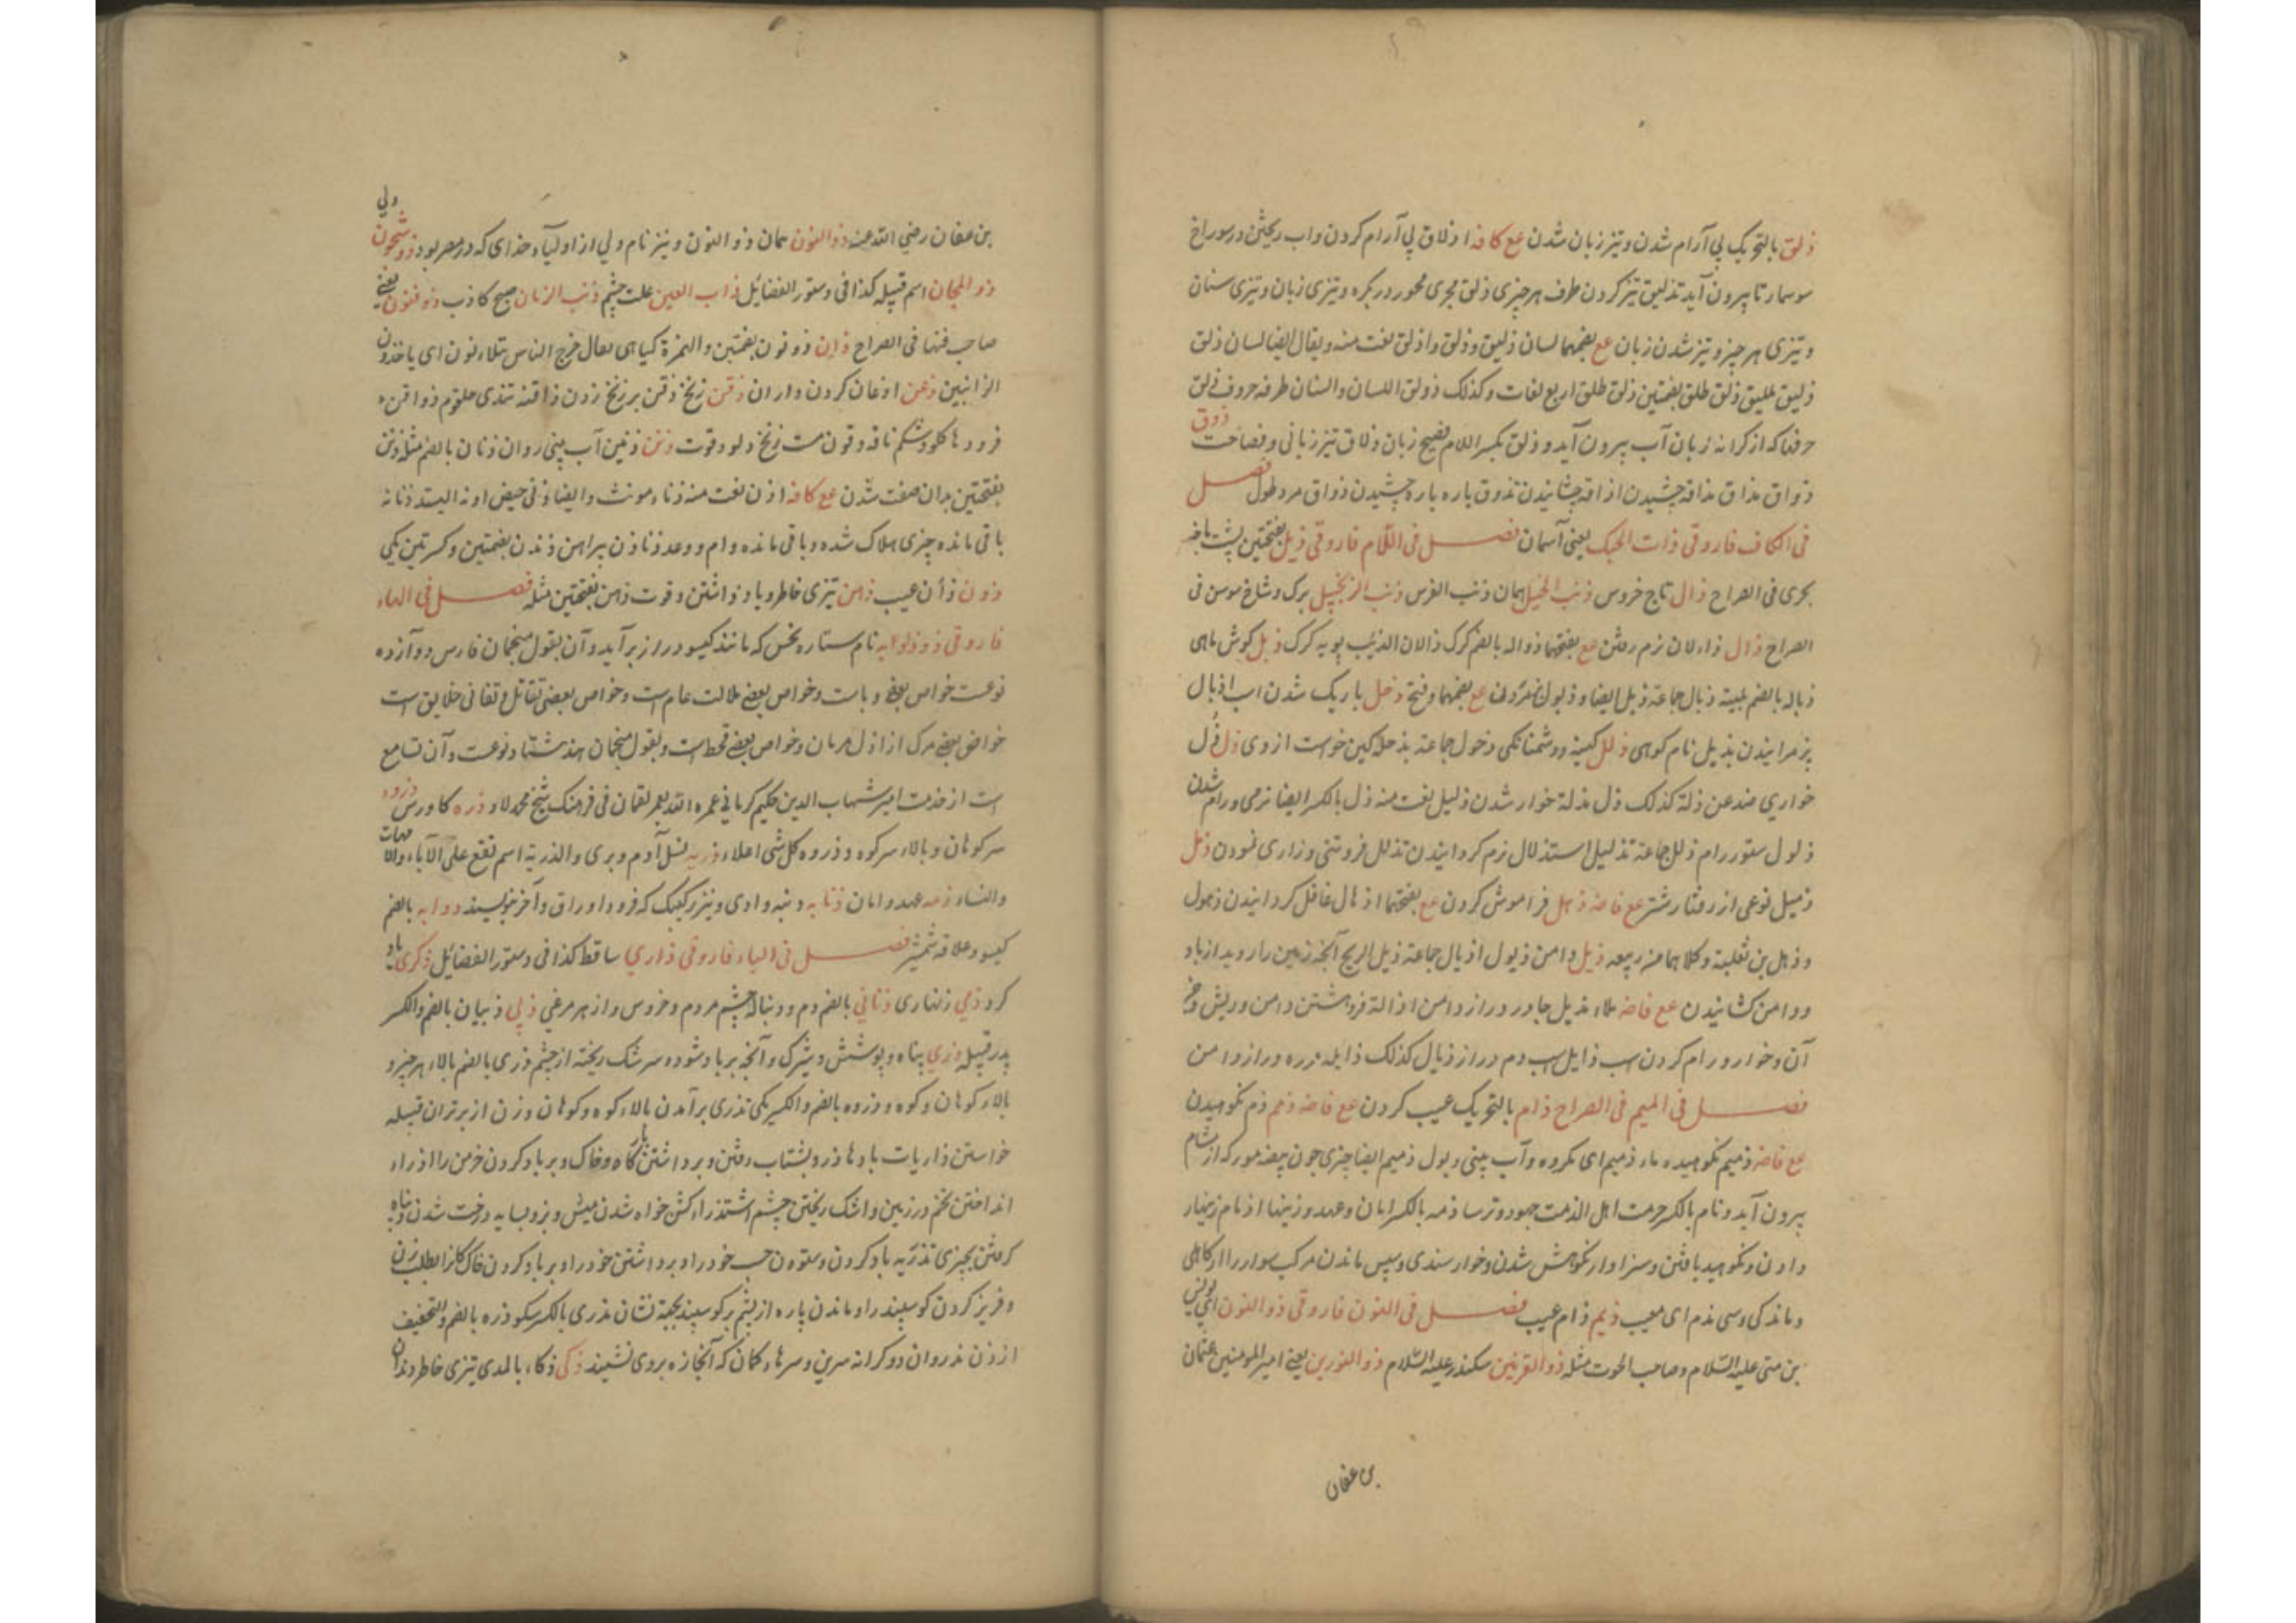 ذلق بالتحریک بی آرام شدن و تیز زبان شدن مع کافه اذلاق بی آرام کردن و آب ریختن در سوراخ
سوسمار تا بیرون آید تذلیق تیز کردن طرف هر چیزی ذلق مجری محور در بکره و تیزی زبان و تیزی سنان
و تیزی هر چیز و تیز شدن زبان مع بضمهما لسان ذلیق و ذلق و اذلق لغت منه و یقال ایضا لسان ذلق
ذلیق طلیق ذلق طلق بضمتین ذلق طلق اربع لغات و کذلک ذولق اللسان و السنان طرفه حروف ذلق
حرفها که از کرانه زبان آب بیرون آید و ذلق بکسر اللام فصیح زبان ذلاق تیز زبانی و فصاحت ذوق
ذواق مذاق مذاقه چشیدن اذاقه چشانیدن تذوق باره باره چشیدن ذواق مرد ملول فصل
فی الکاف فاروقی ذات الحبک یعنی آسمان فصل فی اللام فاروقی ذبل بفتحتین پشت باخه
بحری فی الصراح ذال تاج خروس ذنب الخیل همان ذنب الفرس ذنب الزنجبیل برک و شاخ سوسن فی
الصراح ذال ذاءلان نرم رفتن مع بفتحهما ذواله بالضم کرک ذالان الذئب پویه کرک ذبل کوش ماهی
ذباله بالضم بلیته ذبال جماعة ذبل ایضا و ذبول پژمردن مع بضمهما و فتح دخل باریک شدن اسب اذبال
پژمرانیدن یذبل نام کوهی ذحل کینه و دشمنانکی ذحول جماعة بذحله کین خواست از وی ذل ذُل
خواری ضد عن ذلة کذلک ذل مذلة خوار شدن ذلیل لغت منه ذل بالکسر ایضا نرمی و رام شدن
ذلول ستور رام ذلل جماعة تذلیل استذلال نرم کردانیدن تذلل فروتنی و زاری نمودن ذمل
ذمیل نوعی از رفتار شتر مع فاضه ذهل فراموش کردن مع بفتحهما اذهال غافل کردانیدن ذهول
و ذهل بن ثعلبة و کلاهما من ربیعه ذیل دامن ذیول اذیال جماعة ذیل الریح آنچه زمین را روید از باد
و دامن کشانیدن مع فاضه ملاء مذیل چادر دراز دامن اذالة فروهشتن دامن و ریش و جز
آن و خوار و رام کردن اسب ذایل اسب دم دراز ذیال کذلک ذایله دره دراز دامن
فصل فی المیم فی الصراح ذام بالتحریک عیب کردن مع فاضه ذمم ذم نکوهیدن
مع فاضه ذمیم نکوهیده ماء ذمیم ای مکروه و آب بینی و بول ذمیم ایضا چیزی چون بیضه مور که از مشام
بیرون آید و ذمام بالکسر حرمت اهل الذمت جهود و ترسا ذمه بالکسر امان و عهد و زینها اذمام زینهار
دادن و نکوهیده یافتن و سزاوار نکوهش شدن و خوار سندی و سپس ماندن مرکب سوار را از کاهلی
و ماندکی و سی مذم ای معیب ذیم ذام عیب فصل فی النون فاروقی ذو النون ای یونس
بن متی علیه السلام و صاحب الحوت مثله ذو القرنین سکندر علیه السلام ذو النورین یعنی امیر المومنین عثمان
بن عفان
بن عفان رضی الله عنه ذو النون همان ذو النون و نیز نام ولی از اولیاء خدای که در مصر بود ذو شجون
ذو المجان اسم قبیله کذا فی دستور الفضائل ذاب العین علت چشم ذنب الزمان صبح کاذب ذو فنون یعنی
صاحب فنها فی الصراح ذان ذونون بضمتین و الهمزة کیاهی یقال خرج الناس یتذاءنون ای یاخذون
الذانین ذعن اذعان کردن دادن ذقن زنخ ذقن بر زنخ زدن ذاقنه تندی حلقوم ذواقن
فرودها کلو و شکم ناقه ذقون سست زنخ دلو ذقوت ذنن ذنین آب بینی روان ذنان بالضم مثله ذنن
بفتحتین بدان صفت شدن مع کافه اذن لغت منه ذناء مونث و ایضا ذنی حیض او نه ایستد ذنانه
باقی مانده چیزی هلاک شده و باقی مانده وام و وعده ذناذن پیراهن ذنذن بضمتین و کسرتین یکی
ذون ذأن عیب ذهن تیزی خاطر و یاد داشتن و قوت ذهن بفتحتین مثله فصل فی الهاء
فاروقی ذو ذوابه نام ستاره نحس که مانند کیسو دراز برآید و آن بقول منجمان فارس دوازده
نوعست خواص بعضی وباست و خواص بعضی ملالت عام است و خواص بعضی تقاتل و تفانی خلایق است
خواص بعضی مرک از اذل مردمان و خواص بعضی قحط است و بقول منجمان هند هشتاد نوعست و آن تسامع
است از خدمت امیر شهاب الدین حکیم کرمانی عمره الله بعمر لقمان فی فرهنک شیخ محمد لاد ذره کاورس ذروه
سر کوهان و بالاء سر کوه و ذروه کل شی اعلاء ذریه نسل آدم و پری و الذریة اسم تقع علی الآباء و الامهات
و النساء ذمه عهد و امان ذنابه دنبه وادی و نیز رکیبک که فرود اوراق و آخر نویسند ذوابه بالضم
کیسو و علاقه شمشیر فصل فی الیاء فاروقی ذاری ساقط کذا فی دستور الفضائل ذکری یاد
کرد ذمی زنهاری ذنابی بالضم دم و دنباله چشم مردم و خروس و از هر مرغی ذبی ذبیان بالضم و الکسر
پدر قبیله ذری پناه و پوشش و شرک و آنچه بر باد شود و سرشک ریخته از چشم ذری بالضم بالاء هر چیز و
بالاء کوهان و کوه و ذروه بالضم و الکسر یکی تذری برآمدن بالاء کوه و کوهان و زن از برتران قبیله
خواستن ذاریات بادها ذرو بشتاب رفتن و برداشتن باد کاه و خاک و بر باد کردن خرمن را اذراء
انداختن تخم در زمین و اشک ریختن چشم استذراء کشن خواه شدن میش و بز و بسایه درخت شدن و پناه
کرفتن بچیزی تذریه باد کردن و ستودن حسب خود را و برداشتن خود را و بر باد کردن خاک کانرا بطلب زر
و فریز کردن کوسپند را و ماندن پاره از پشم بر کوسپند بجهة نشان مذری بالکسر سکو ذره بالضم و التخفیف
ارزن مذروان دو کرانه سرین و سرهاء کمان که آنجا زه بروی نشیند ذکی ذکاء بالمدی تیزی خاطر و ندان